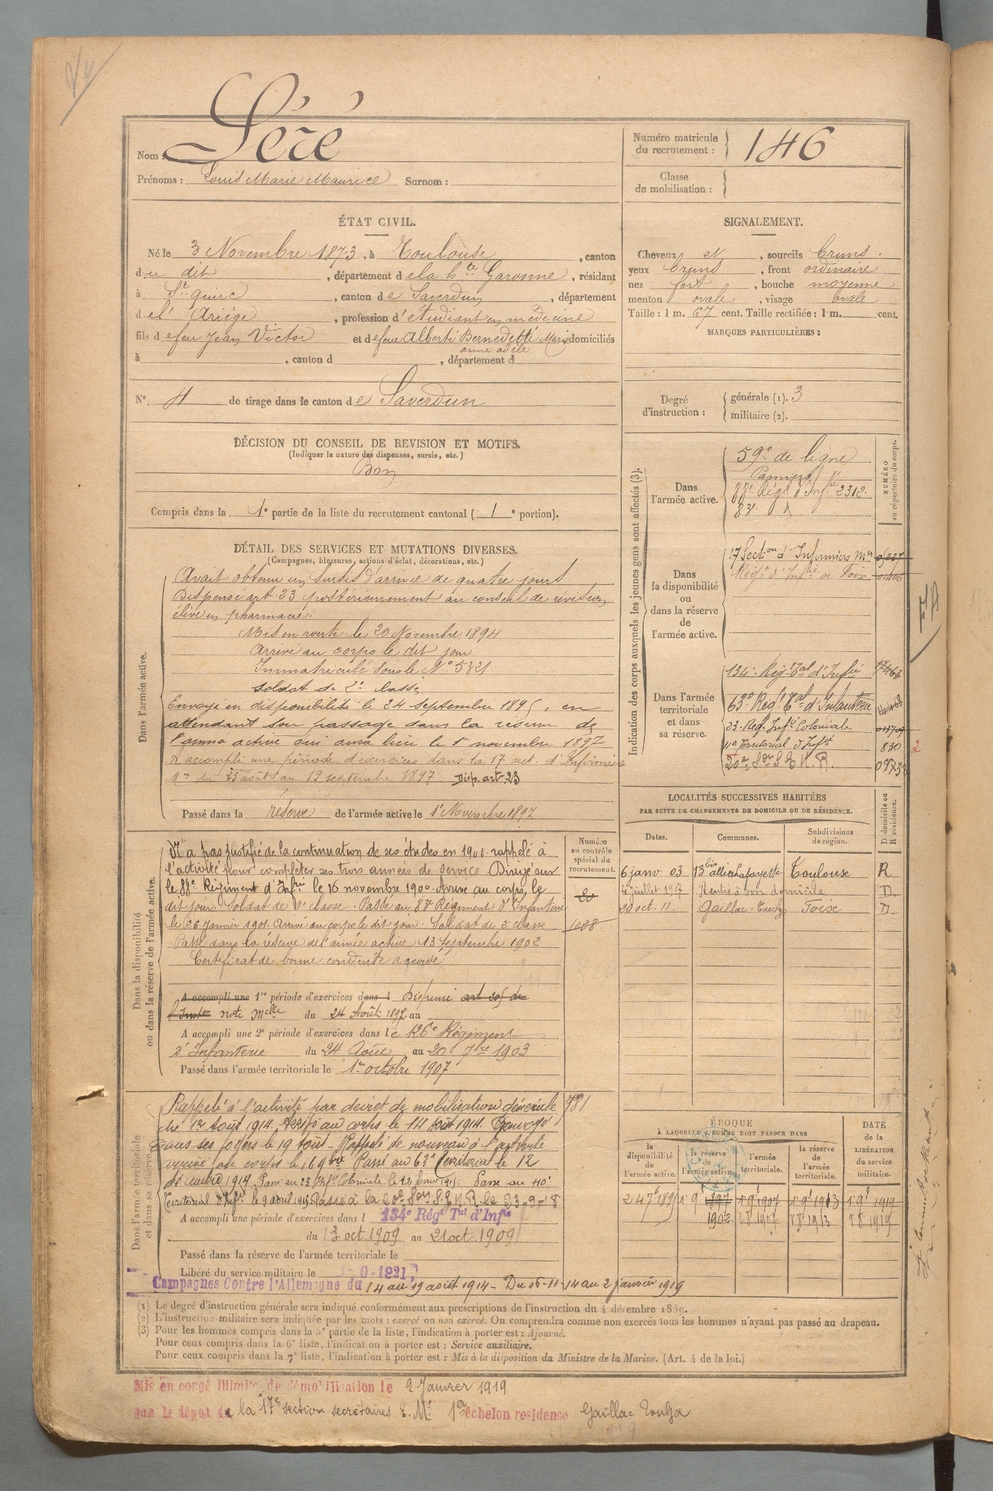 Nom : Séré
Prénoms : Louis Marie Maurice Surnom :
Numéro matricule du recrutement : 146
Classe de mobilisation :
ÉTAT CIVIL.
Né le 3 Novembre 1873, à Toulouse, canton
du dit, département de la hte Garonne, résidant
à St Quirc, canton de Saverdun, département
de l'Ariége, profession d'étudiant en médecine
fils de feu Jean Victor et de feue Alberti Bernedette Marie domiciliés
anne adèle
à , canton d , département d
N°. 4 de tirage dans le canton de Saverdun
SIGNALEMENT.
Cheveux et, sourcils bruns.
yeux bruns, front ordinaire
nez fort, bouche moyenne
menton ovale, visage ovale
Taille : 1 m. 67 cent. Taille rectifiée : 1 m. cent.
MARQUES PARTICULIÈRES :
Degré d'instruction : générale (1). 3
militaire (2).
DÉCISION DU CONSEIL DE REVISION ET MOTIFS.
(Indiquer la nature des dispenses, sursis, etc.)
Bon
Compris dans la 1e partie de la liste du recrutement cantonal ( 1e portion).
DÉTAIL DES SERVICES ET MUTATIONS DIVERSES.
(Campagnes, blessures, actions d'éclat, décorations, etc.)
Dans l'armée active.
Avait obtenu un sursis d'arrivée de quatre jours
Dispensé art 23 postérieurement au conseil de révision
élève en pharmacie
Mis en route le 20 Novembre 1894
Arrivé au corps le dit jour
Immatriculé sous le N° 5321
Soldat de 2e classe
Envoyé en disponibilité le 24 septembre 1895, en
attendant son passage dans la réserve de
l'armée active qui aura lieu le 1er novembre 1897
A accompli une période d'exercices dans la 17 sect. d'Infirmiers
du 23 août au 19 septembre 1897 Disp. art 23
Passé dans la réserve de l'armée active le 1er Novembre 1897
Indication des corps auxquels les jeunes gens sont affectés (3).
NUMÉRO au répertoire du corps.
Dans l'armée active.
59e de ligne
Pamiers
88e Régt d'Infie 2312
83e d
Dans la disponibilité ou dans la réserve de l'armée active.
17 Section d'Infirmiers Mres
Régt d'Infie de Foix
Dans l'armée territoriale et dans sa réserve.
134e Régt Tal d'Infie
63e Régt Tal d'Infanterie
23 Régt Infie Coloniale
Territorial d'Infie 830
20e Son S E M R.
Dans la disponibilité ou dans la réserve de l'armée active.
Numéro au contrôle spécial du recrutement.
N'a pas justifié de la continuation de ses études en 1900 rappelé à
l'activité pour compléter ses trois années de service Dirigé sur
le 88e Régiment d'Infie le 16 novembre 1900 Arrivé au corps le
dit jour soldat de 2e classe. Passé au 83e Régiment d'Infanterie
le 26 Janvier 1901 Arrivé au corps le dit jour. Soldat de 2e classe
Passé dans la réserve de l'armée active 13 Septembre 1902
Certificat de bonne conduite accordé
A accompli une 1re période d'exercices dans l Dispensé
note Melle du 24 Août 1897 au
A accompli une 2e période d'exercices dans le 126e Régiment
d'Infanterie du 24 Août au 20 7bre 1903
Passé dans l'armée territoriale le 1er octobre 1907
LOCALITÉS SUCCESSIVES HABITÉES
PAR SUITE DE CHANGEMENTS DE DOMICILE OU DE RÉSIDENCE.
Dates. Communes. Subdivisions de région. D domicile ou R résidence.
6 janv 03 13bis allées Lafayette Toulouse R
juillet 1907 Rentré à son domicile D
20 oct. 11. Gaillac-Toulza Foix D.
Dans l'armée territoriale et dans sa réserve.
Rappelé à l'activité par décret de mobilisation générale 781
du 1er Août 1914. Arrivé au corps le 14 Août 1914. Renvoyé
dans ses foyers le 19 Août. Rappelé de nouveau à l'activité
arrivé au corps le 16 9bre Passé au 63e Territorial le 12
Décembre 1914 Passé au 23e Infie Coloniale le Passé au 110e
Territorial d'Infie le 9 avril 1915 Passé à la 20e Son S E M R. le 23-9-18
A accompli une période d'exercices dans l 134e Régt Tal d'Infie
du 13 oct 1909 au 21 oct 1909
Passé dans la réserve de l'armée territoriale le
Libéré du service militaire le 0-1921
Campagnes Contre l'Allemagne du 14 au 19 août 1914 - Du 16-11-14 au 2 janvier 1919
ÉPOQUE
À LAQUELLE L'HOMME DOIT PASSER DANS
la disponibilité de l'armée active. la réserve de l'armée active. l'armée territoriale. la réserve de l'armée territoriale.
DATE DE LA LIBÉRATION du service militaire.
24 7e 1895 1er 9e 1897 1er 9e 1907 1er 9e 1913 1er 9e 1919
1902
(1) Le degré d'instruction générale sera indiqué conformément aux prescriptions de l'instruction du 4 décembre 1889.
(2) L'instruction militaire sera indiquée par les mots : exercé ou non exercé. On comprendra comme non exercés tous les hommes n'ayant pas passé au drapeau.
(3) Pour les hommes compris dans la 5e partie de la liste, l'indication à porter est : Ajourné.
Pour ceux compris dans la 6e liste, l'indication à porter est : Service auxiliaire.
Pour ceux compris dans la 7e liste, l'indication à porter est : Mis à la disposition du Ministre de la Marine. (Art. 4 de la loi.)
Mis en congé illimité de démobilisation le 2 Janvier 1919
par le dépôt de la 17e section secrétaires E. M. 1er échelon résidence Gaillac Toulza